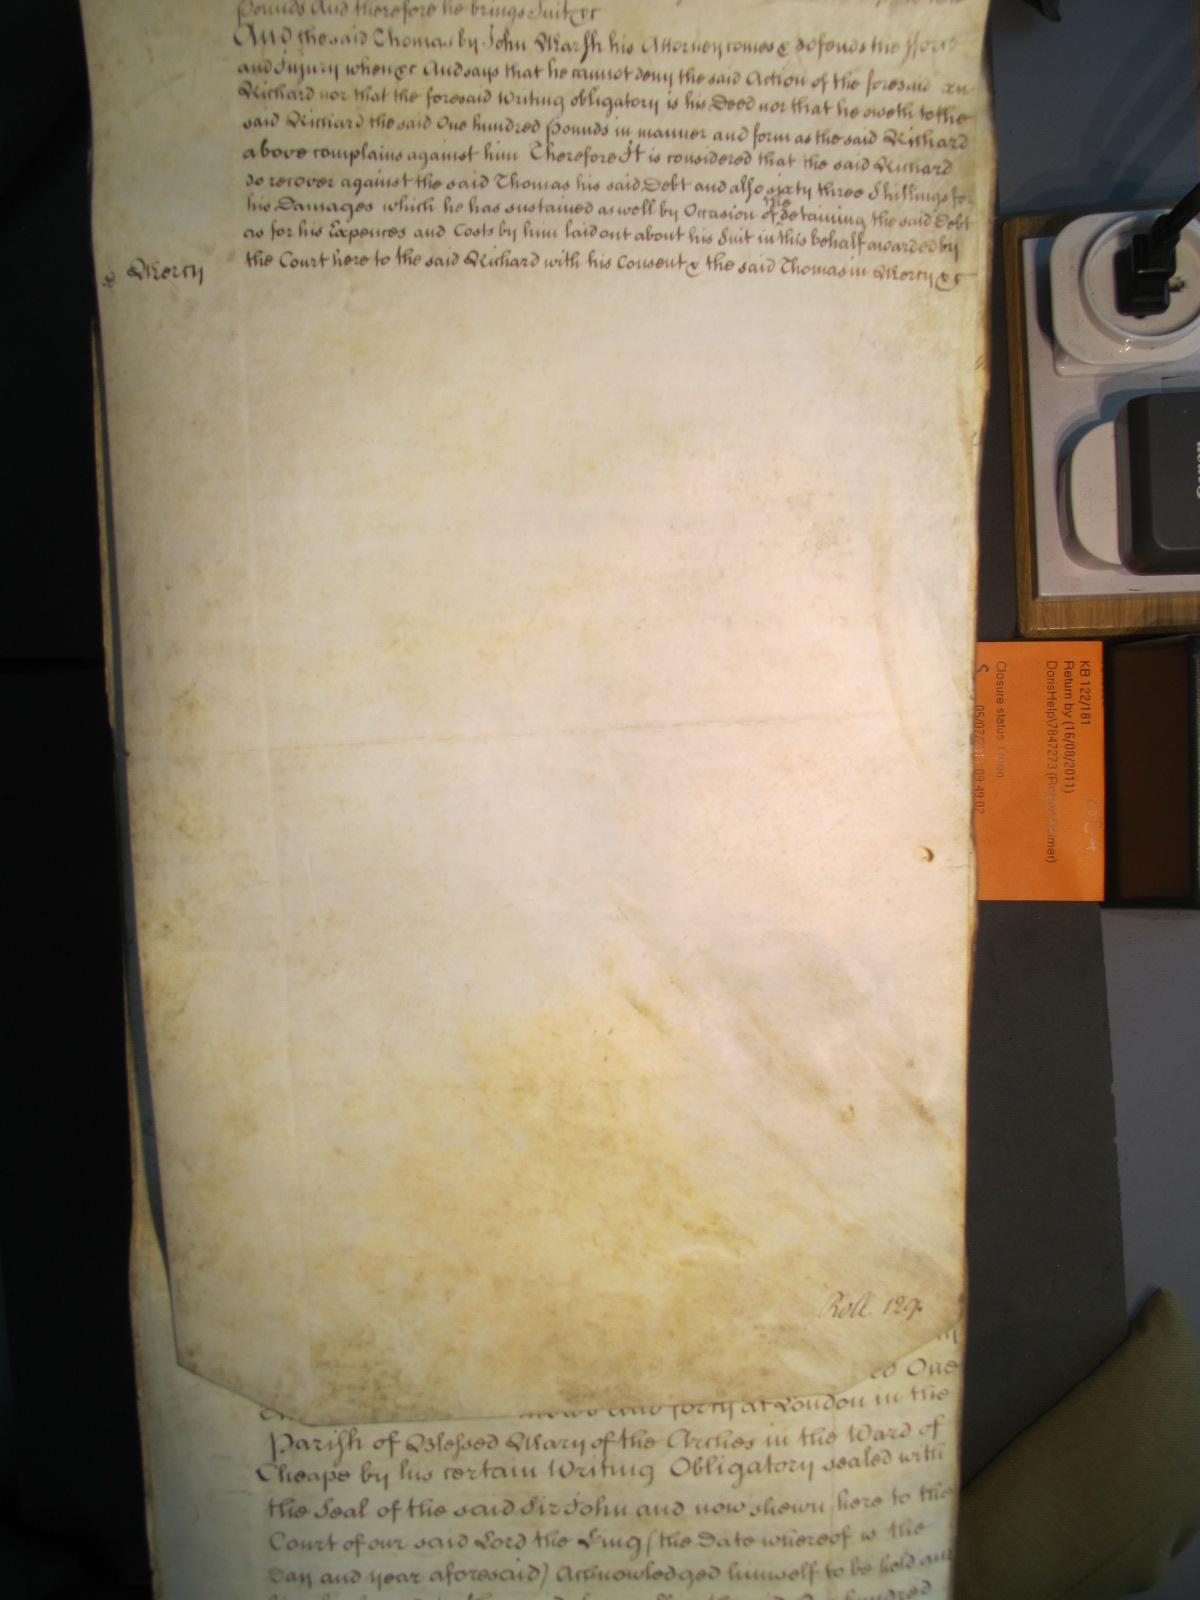 Pounds And therefore he brings Suit &c
And the said Thomas by John Marsh his Attorney comes & defends the Force
and Injury when &c And says that he cannot deny the said Action of the foresaid
Richard nor that the foresaid Writing obligatory is his Deed nor that he oweth to the
said Richard the said One hundred Pounds in manner and form as the said Richard
above complains against him Therefore It is considered that the said Richard
do recover against the said Thomas his said Debt and also sixty three Shillings for
his Damages which he has sustained as well by Occasion of the detaining the said Debt
as for his Expences and Costs by him laid out about his Suit in this behalf awarded by
Mercy the Court here to the said Richard with his Consent & the said Thomas in Mercy &c
Roll 129
One
and forty at London in the
Parish of Blessed Mary of the Arches in the Ward of
Cheape by his certain Writing Obligatory sealed with
the Seal of the said Sir John and now shewn here to the
Court of our said Lord the King (the Date whereof is the
Day and year aforesaid) Acknowledged himself to be held and
hundred
KB 122/181
Return by (16/08/2011)
DorisHelp\7847273
Closure status: Open
09:49:02